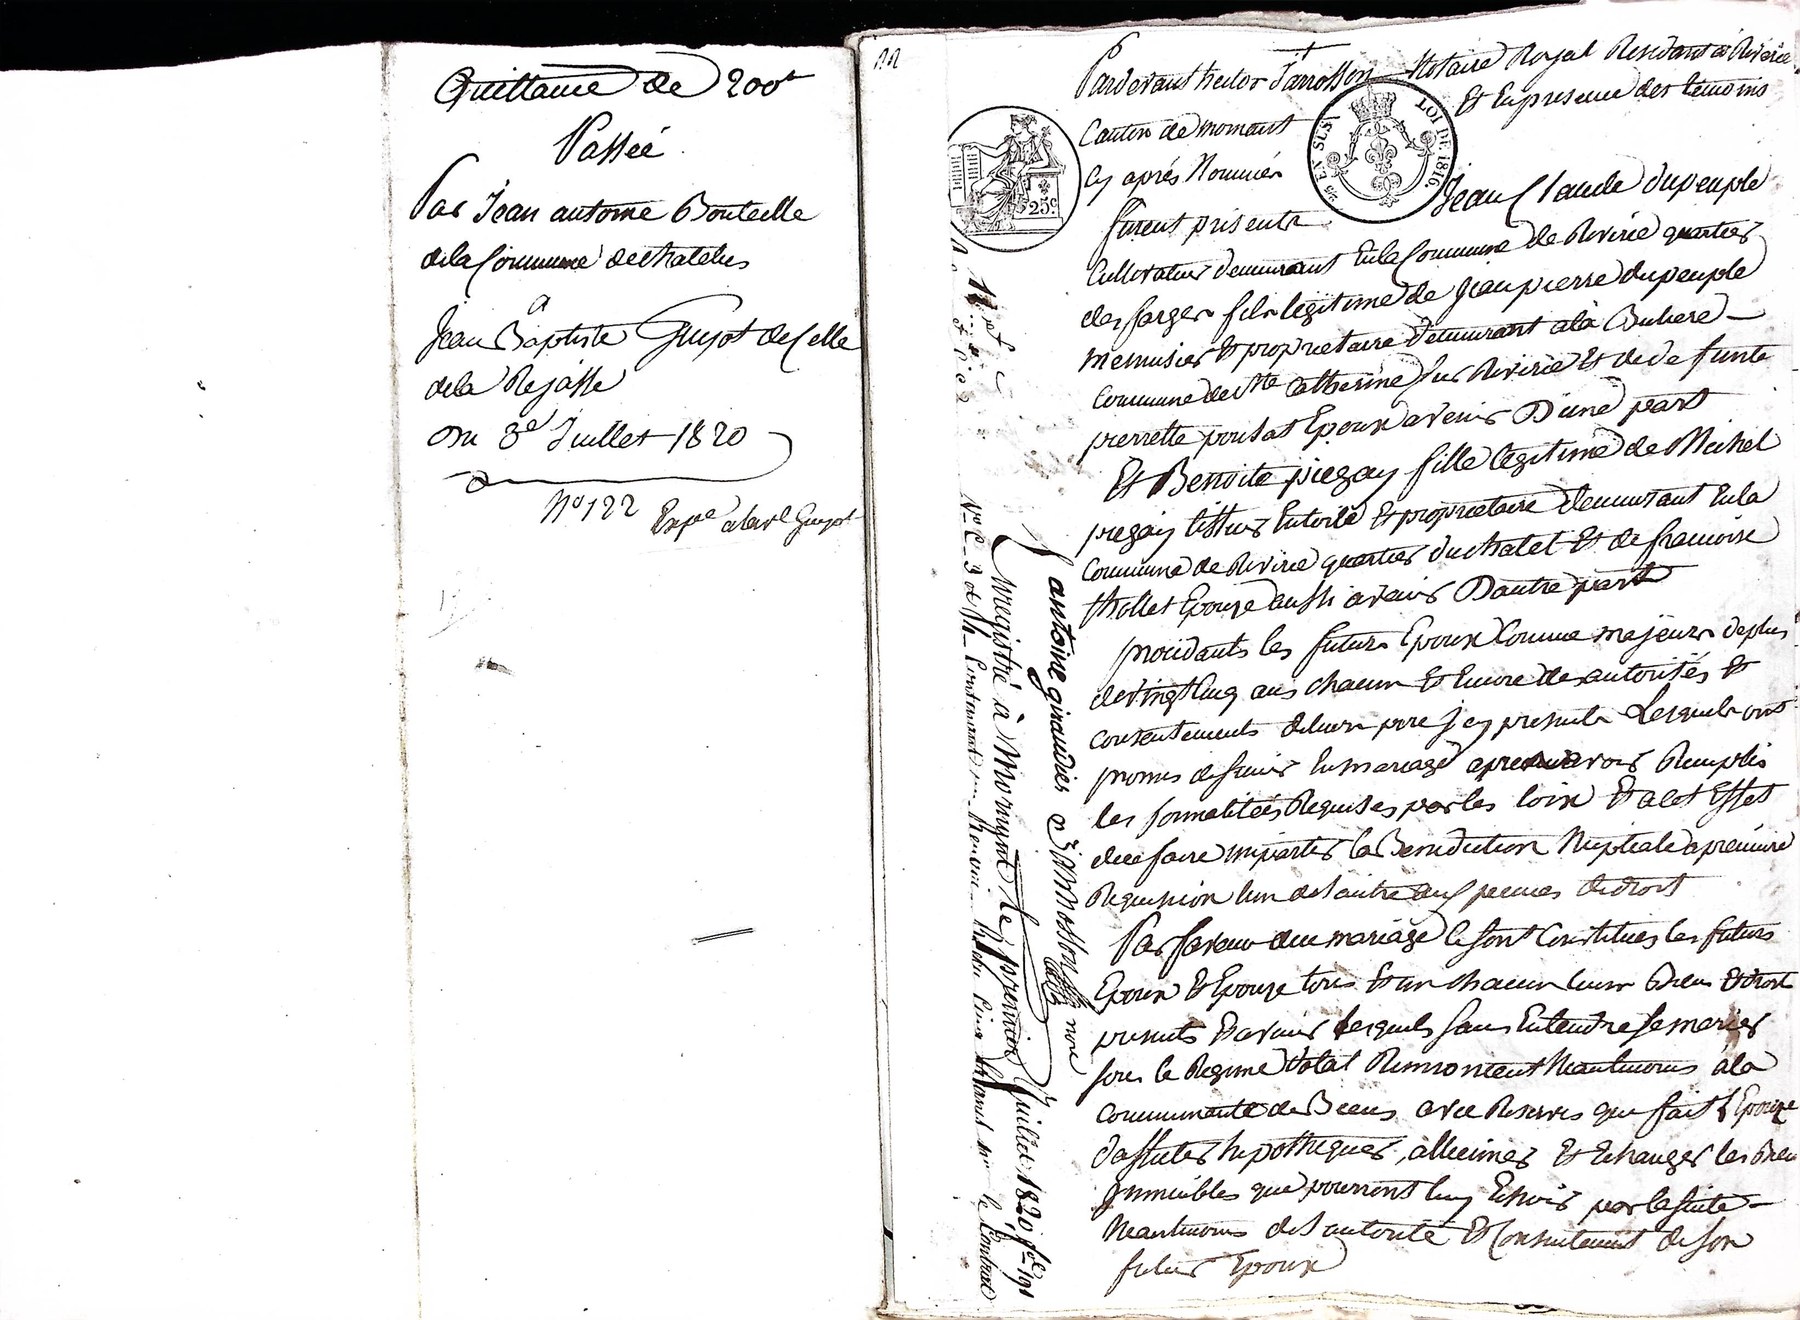 Quittance de 200f
Passée
Par Jean antoine Bouteille
dela Commune dechatelus
a
Jean Baptiste Guyot de Celle
dela Rejasse
Du 3e Juillet 1820
No 122
Expe alavl Guyot
Pardevant hector Jarrosson Notaire Royal Residant à Riverie
Canton de mornant Et Enpresence des témoins
Cy aprés Nommés
furent présents Jean Claude dupeuple
Cultivateur demeurant Enla Commune de Riverie quartier
des farges fils legitime de Jean pierre dupeuple
menusier Et proprietaire demeurant ala Buliere
Commune de Ste Catherine sur Riverie Et de defunte
pierrette poulat Epoux avenir D'une part
Et Benoite piegay fille legitime de Michel
piegay tissier Entoile Et proprietaire demeurant Enla
Commune de Riverie quartier duchatel Et de francoise
thollet Epouze aussi avenir D'autre part
procédants les futurs Epoux Comme majeurs deplus
devingtcinq ans chacun Et Encore des autorités Et
consentements deleurs pere Jcy presents Lesquels ont
promis desunir En mariage apres avoir Remplis
les formalités Requises par les loix Et acet Effet
dese faire impartir la Benediction Nuptiale apremiere
Requisition lun delautre aux peines dedroit
Par faveur duu mariage se sont Constitués les futurs
Epoux Et Epouze tous Et un chacun leurs Biens Et droits
presents Et avenir Lesquels sans Entendre se marier
sous le Regime dotal Renoncent Neantmoins àla
communauté de Biens avec Reserves que fait l'Epouze
d'affecter hypothequer, alliener Et Echanger les Biens
Jmmeubles que pourront luy Echoir par la suite
Neantmoins del'autorité Et Consentement de son
futur Epoux
25c
EN SUS
LOI DE 1816.
antoine giraudier & Jarrosson nore
Enregistré à Mornant le premier Juillet 1820 fo 191
Vo C 3 et 4 Contenant un Renvoi